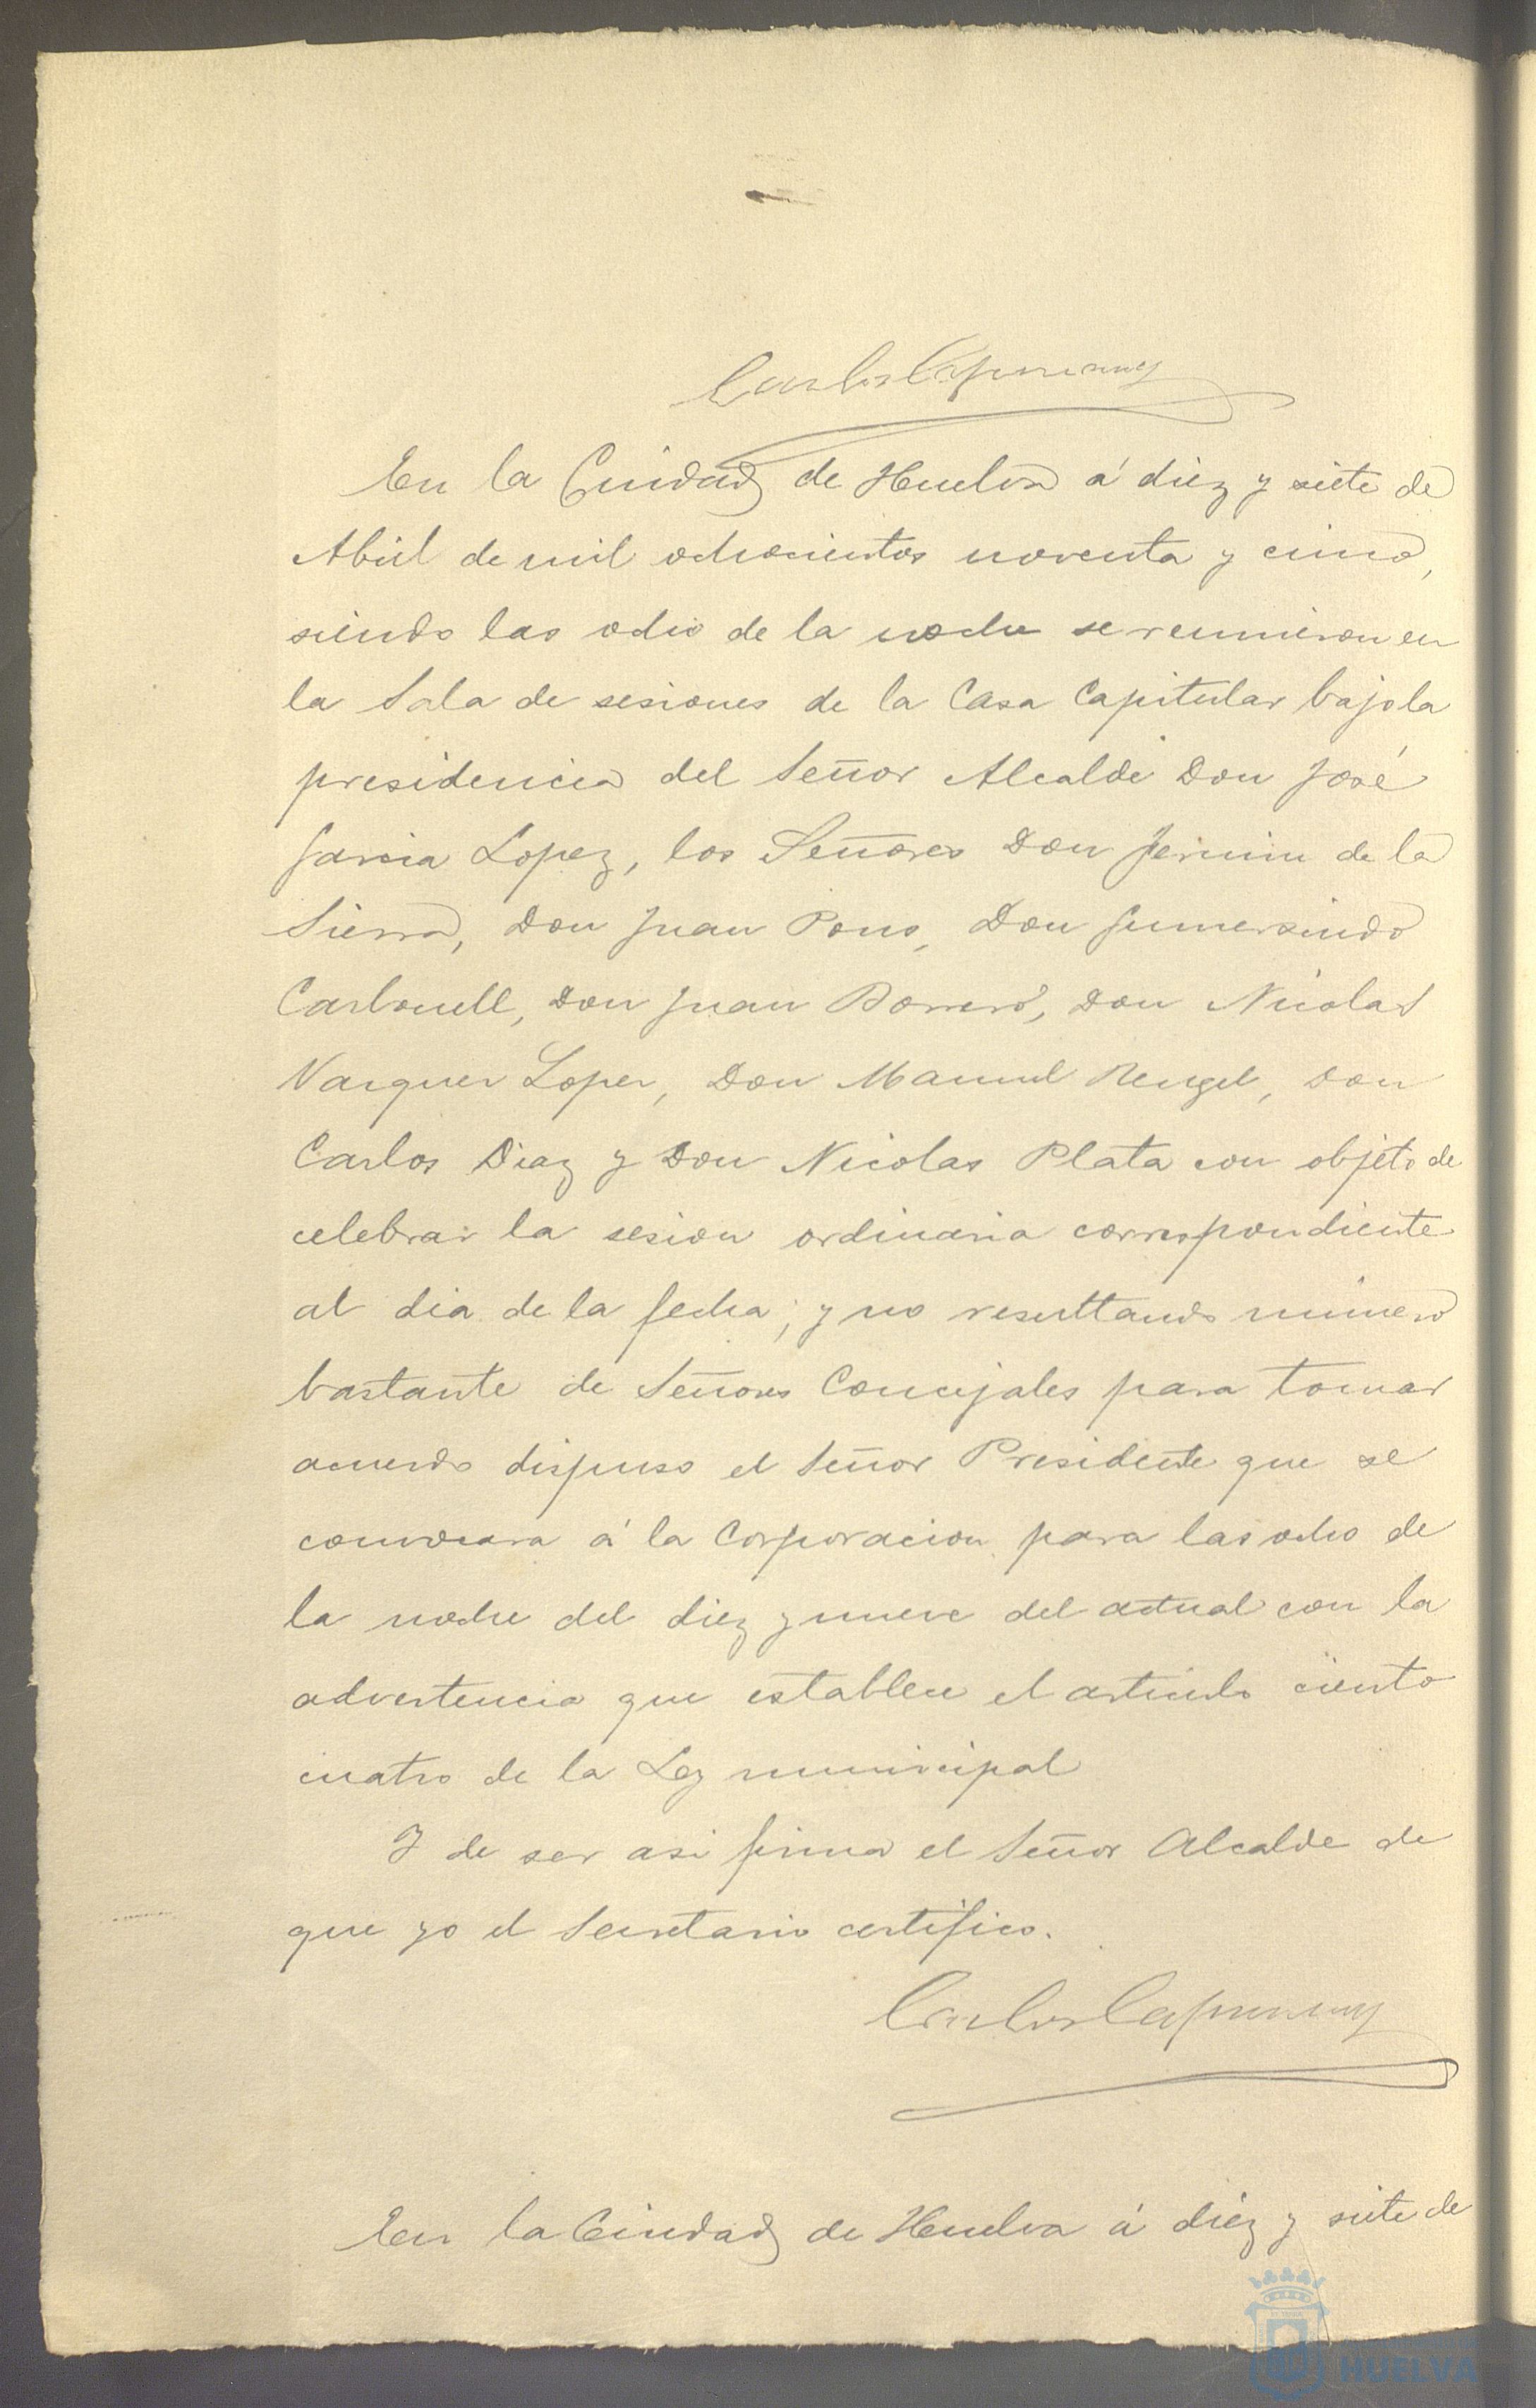 Carlos Capmany
En la Ciudad de Huelva á diez y siete de
Abril de mil ochocientos noventa y cinco,
siendo las ocho de la noche se reunieron en
la Sala de sesiones de la Casa Capitular bajo la
presidencia del Señor Alcalde Don José
Garcia Lopez, los Señores Don Fermin de la
Sierra, Don Juan Pons, Don Gumersindo
Carbonell, Don Juan Borrero, Don Nicolas
Vazquez Lopez, Don Manuel Rengel, Don
Carlos Diaz y Don Nicolas Plata con objeto de
celebrar la sesion ordinaria correspondiente
al dia de la fecha; y no resultando número
bastante de Señores Concejales para tomar
acuerdo dispuso el Señor Presidente que se
convocara á la Corporacion para las ocho de
la noche del diez y nueve del actual con la
advertencia que establece el articulo ciento
cuatro de la Ley municipal
Y de ser asi firma el Señor Alcalde de
que yo el Secretario certifico.
Carlos Capmany
En la Ciudad de Huelva á diez y siete de
HUELVA